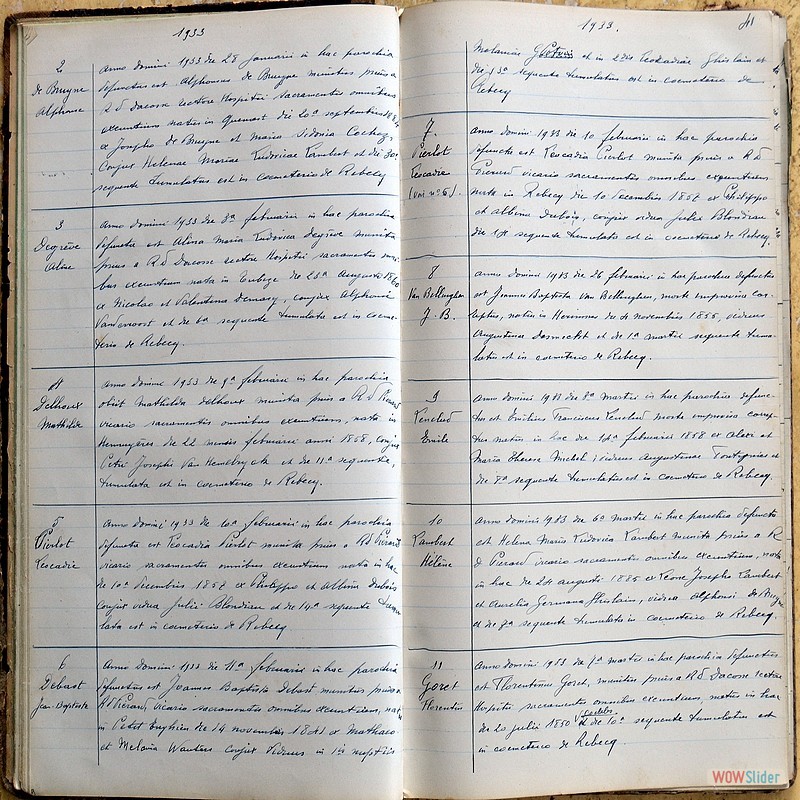 1933
2
de Bruyne
Alphonse
Anno Domini 1933 die 28 Januarii in hac parochia
defunctus est Alphonsus de Bruyne munitus prius a
R d Dacosse rectore Hospitii sacramentis omnibus
exeuntium natus in Quenast die 20a septembris
ex Josepho de Bruyne et Maria Sidonia
Conjux Helenae Mariae Ludovicae Lambert et die 30a
sequente tumulatus est in coemeterio de Rebecq
3
Degrève
Aline
Anno Domini 1933 die 3a februarii in hac parochia
defuncta est Alina Maria Ludovica Degrève munita
prius a R d Dacosse rectore Hospitii sacramentis omni
bus exeuntium nata in Tubize die 25a Augusti 1860
ex Nicolao et Valentina conjux Alphonsi
Vandervorst et die 6a sequente tumulata est in coeme
terio de Rebecq.
4
Delhoux
Mathilda
Anno Domini 1933 die 9a februarii in hac parochia
obiit Mathilda Delhoux munita prius a R d Pierard
vicario sacramentis omnibus exeuntium, nata in
Hennuyères die 22 mensis februarii anni 1858, conjux
Petri Josephi Van et die 11a sequente,
tumulata est in coemeterio de Rebecq.
5
Pierlot
Leocadie
Anno Domini 1933 die 10a februarii in hac parochia
defuncta est Leocadia Pierlot munita prius a R d Pierard
vicario sacramentis omnibus exeuntium nata in hac
die 10a decembris 1857 ex Philippo et Albina Dubois
conjux vidua Julii Blondiau et die 14a sequente tumu
lata est in coemeterio de Rebecq
6
Debast
Jean Baptiste
Anno Domini 1933 die 11a februarii in hac parochia
defunctus est Joannes Baptista Debast munitus prius a
R d Pierard vicario sacramentis omnibus exeuntium, natus
in Petit Enghien die 14 novembris 1841 ex Mathaeo
et Melania Wauters conjux viduus in 1is nuptiis
1933.
41
Melaniae et in 2dis Leocadiae Ghislain et
die 13a sequente tumulatus est in coemeterio de
Rebecq
7.
Pierlot
Leocadie
(voir no 5).
Anno Domini 1933 die 10 februarii in hac parochia
defuncta est Leocadia Pierlot munita prius a R d
Pierard vicario sacramentis omnibus exeuntium
nata in Rebecq die 10 decembris 1857 ex Philippo
et Albina Dubois, conjux vidua Julii Blondiau
die 14 sequente tumulata est in coemeterio de Rebecq.
8
Van Bellinghen
J. B.
Anno Domini 1933 die 26 februarii in hac parochia defunctus
est Joannes Baptista Van Bellinghen, morte improvisa cor
reptus, natus in Herinnes die 4 novembris 1855, viduus
Augustinae et die 1a martii sequente tumu
latus est in coemeterio de Rebecq.
9
Emile
Anno Domini 1933 die 3a Martii in hac parochia defunc
tus est Emilius Franciscus morte improvisa correp
tus natus in hac die 19a februarii 1858 ex Alexi et
Maria Therese Michel viduus Augustinae et
die 7a sequente tumulatus est in coemeterio de Rebecq.
10
Lambert
Hélène
Anno Domini 1933 die 6a Martii in hac parochia defuncta
est Helena Maria Ludovica Lambert munita prius a R
D Pierard vicario sacramentis omnibus exeuntium, nata
in hac die 24 augusti 1885 ex Leone Josepho Lambert
et Aurelia Germana Ghislain, vidua Alphonsi de Bruyne
et die 9a sequente tumulata est in coemeterio de Rebecq.
11
Goret
Florentin
Anno Domini 1933 die 7a martii in hac parochia defunctus
est Florentinus Goret, munitus prius a R d Dacosse rectore
Hospitii sacramentis omnibus exeuntium, natus in hac
die 20 julii 1850 caelebs et die 10a sequente tumulatus est
in coemeterio de Rebecq.
WOWSlider